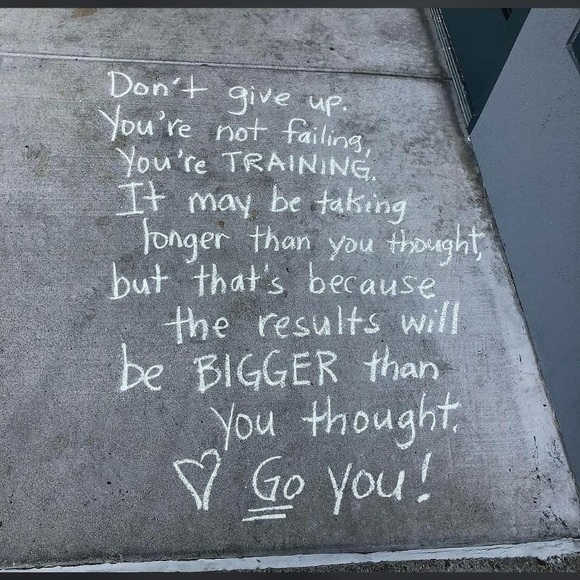 Don't give up.
You're not failing,
You're TRAINING.
It may be taking
longer than you thought,
but that's because
the results will
be BIGGER than
you thought.
♡ Go you!